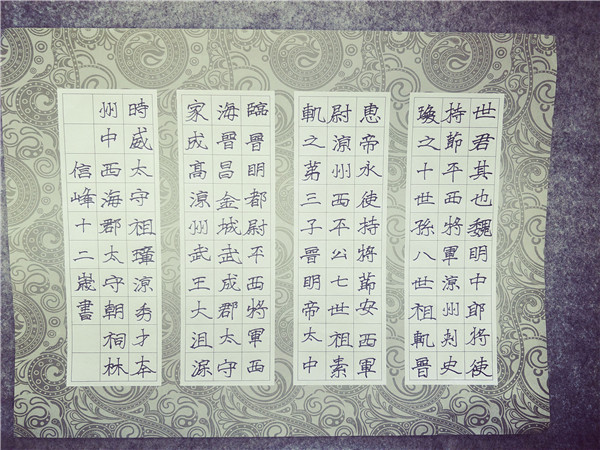 世君其也魏明中郎將使
持節平西將軍涼州刾史
之十世孫八世祖軌晉
恵帝永使持將節安西軍
尉涼州西平公七世祖素
軌之第三子晉明帝太中
臨晉明都尉平西將軍西
海晉昌金城武成郡太守
家成高涼州武王大沮渠
時威太守祖璋涼秀才本
州中西海郡太守朝祠林
信峰十二歲書